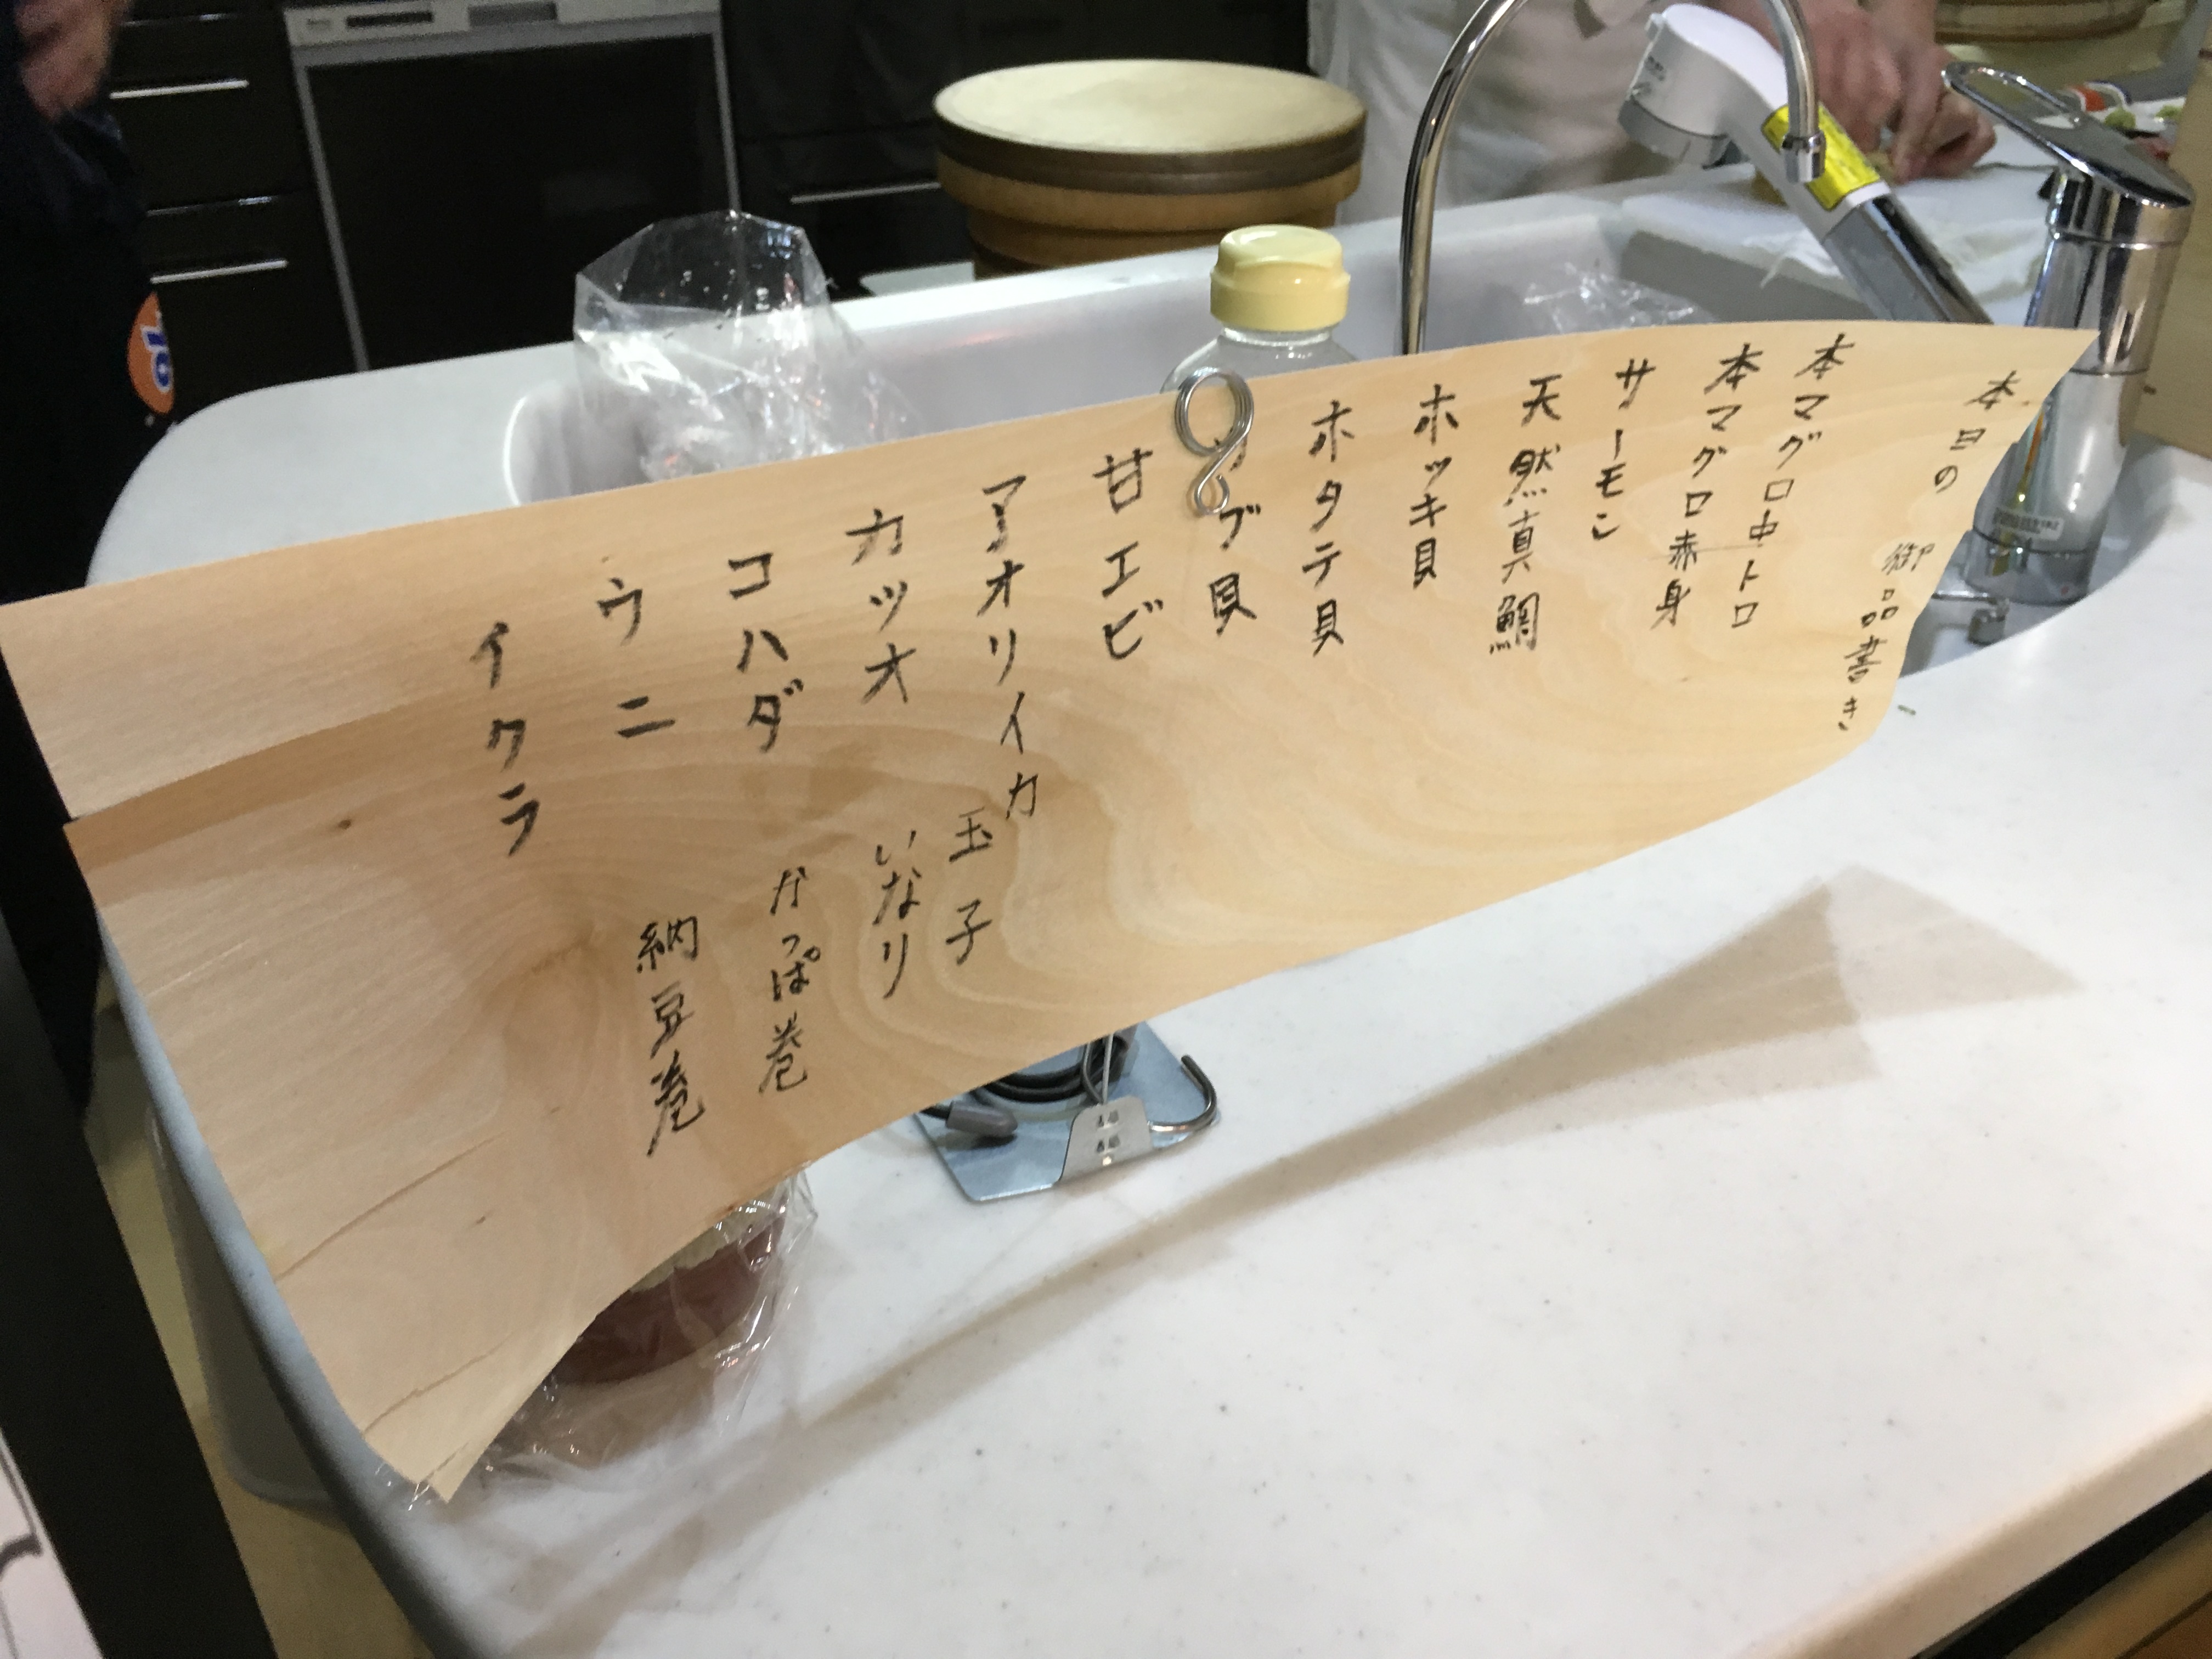 本日の 御品書き
本マグロ中トロ
本マグロ赤身
サーモン
天然真鯛
ホッキ貝
ホタテ貝
ブ貝
甘エビ
アオリイカ
カツオ
コハダ
ウニ
イクラ
玉子
いなり
かっぱ巻
納豆巻
76